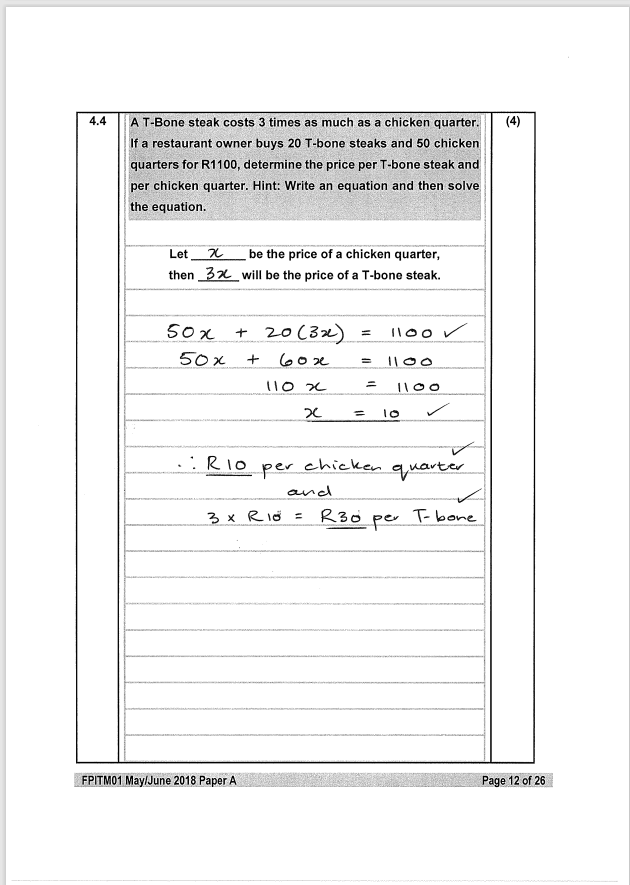 4.4
A T-Bone steak costs 3 times as much as a chicken quarter.
If a restaurant owner buys 20 T-bone steaks and 50 chicken
quarters for R1100, determine the price per T-bone steak and
per chicken quarter. Hint: Write an equation and then solve
the equation.
(4)
Let x be the price of a chicken quarter,
then 3x will be the price of a T-bone steak.
50x + 20(3x) = 1100 ✓
50x + 60x = 1100
110x = 1100
x = 10 ✓
∴ R10 per chicken quarter ✓
and
3 x R10 = R30 per T-bone ✓
FPITM01 May/June 2018 Paper A
Page 12 of 26